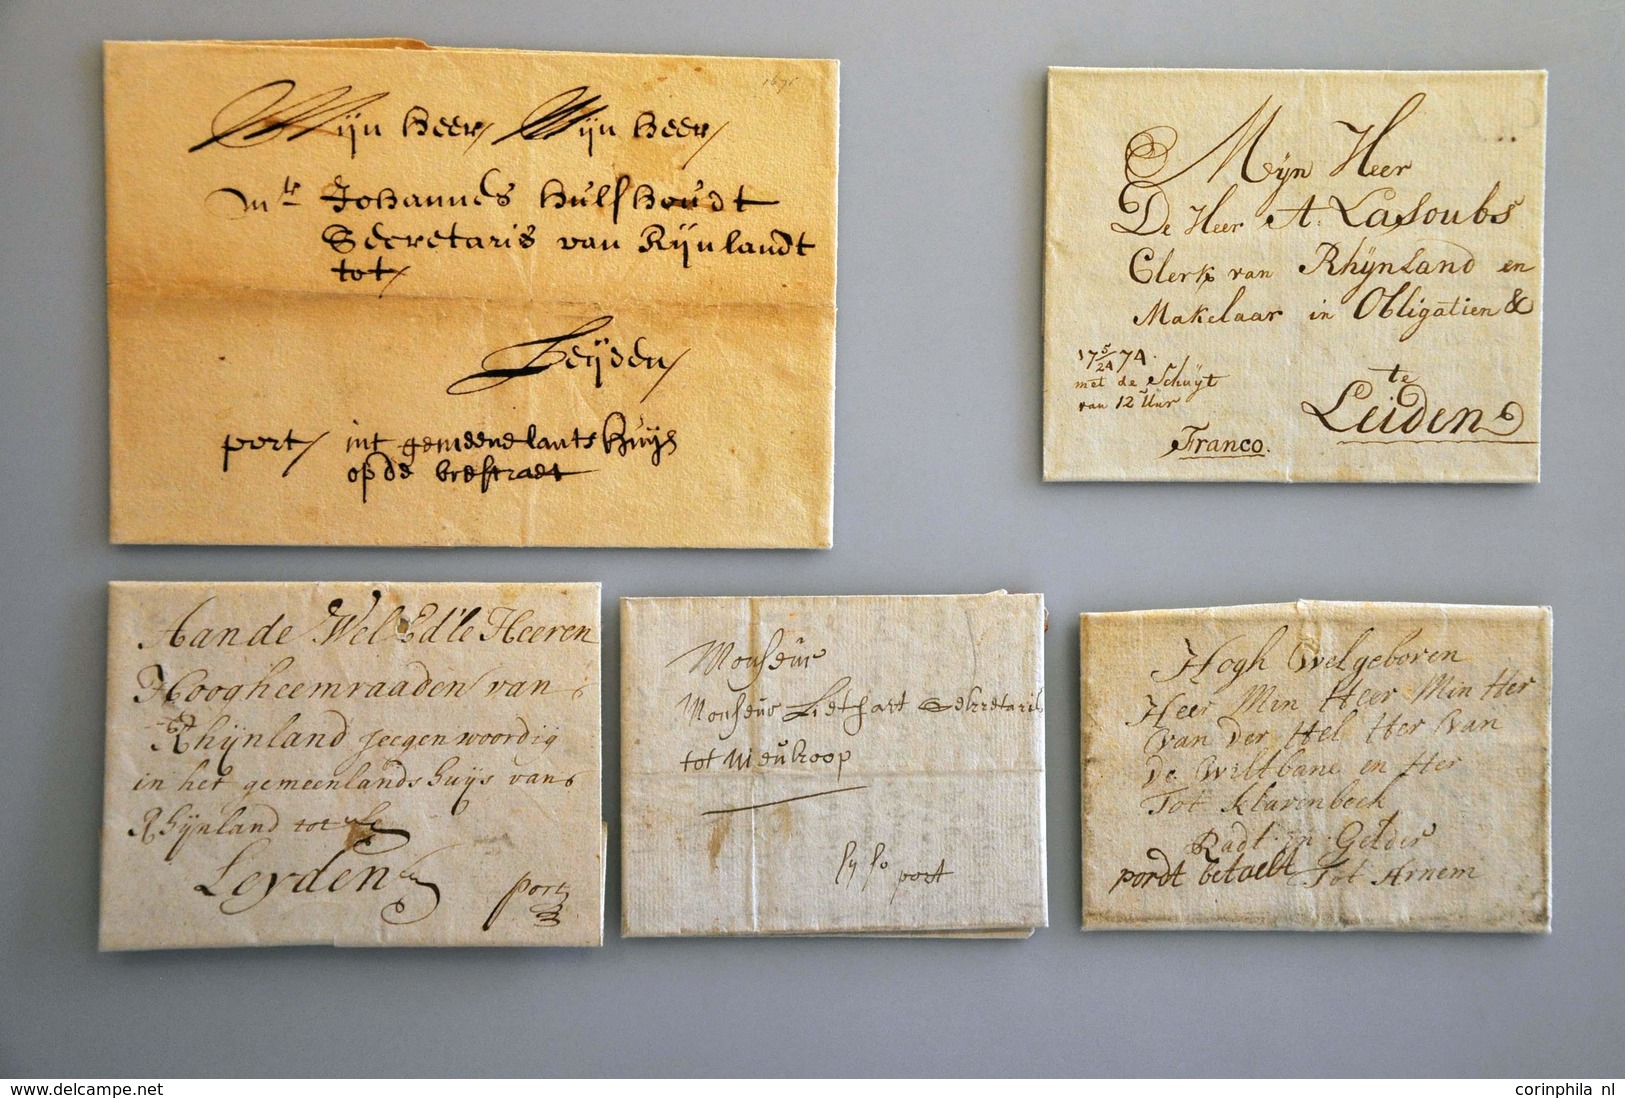 1671
Mijn heer Mijn heer
Mr Johannes hulshoudt
Secretaris van Rijnlandt
tot
Leijden
port int gemeene lants huijs
op de breestraet
Mÿn Heer
De Heer A. Lasoubs
Clerk van Rhÿnland en
Makelaar in Obligatien &
te
Leiden
17 5/24 74.
met de Schuÿt
van 12 Uur
Franco.
Aan de Wel Ed'le Heeren
Hoogheemraaden van
Rhijnland jeegenwoordig
in het gemeenlands huijs van
Rhijnland tot
Leyden
port
Monsieur
Monsieur Liethart Sekretaris
tot Nieukoop
port
Hogh Welgeboren
Heer Min Heer Min Her
van der Hel Her van
De Wiltbane en Her
Tot Klarenbeek
Radt in Gelder
pordt betaelt Tot Arnem
www.delcampe.net
corinphila nl